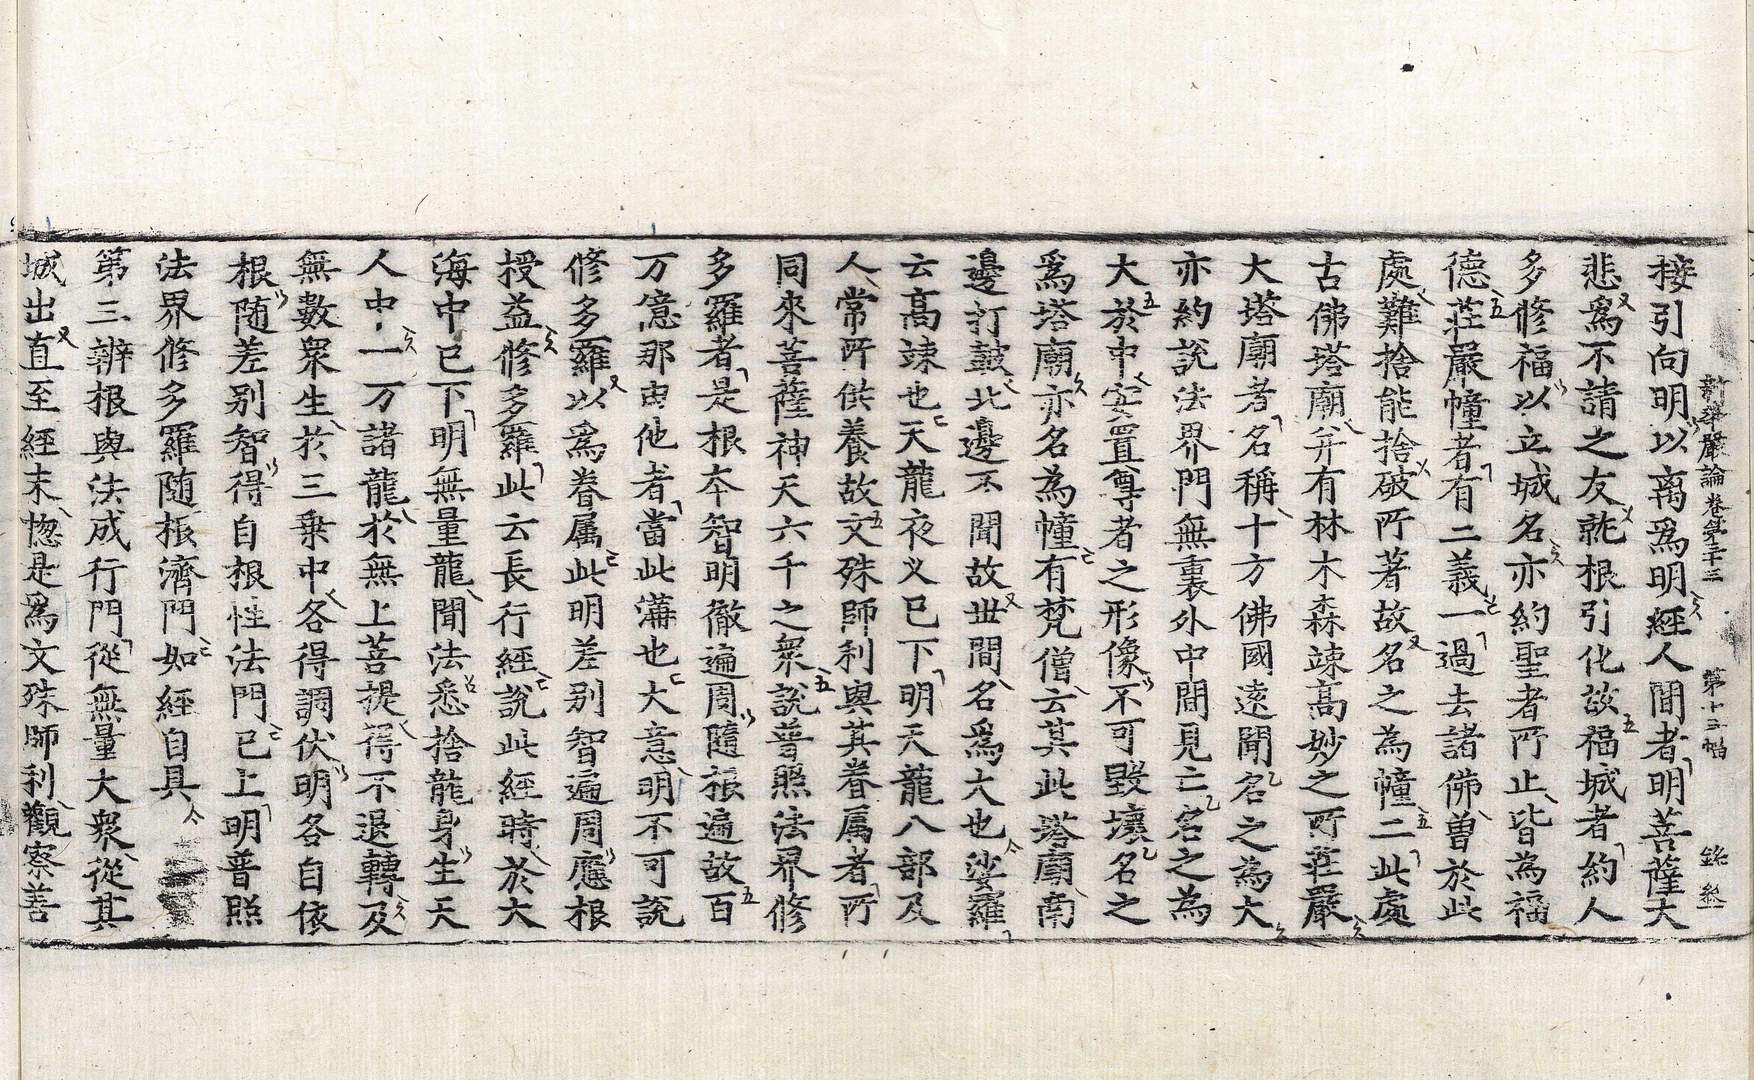 新華嚴論卷第三十三 第十三幅 銖
接引向明以离爲明經人間者明菩薩大
悲爲不請之友就根引化故福城者約人
多修福以立城名亦約聖者所止皆為福
德莊嚴幢者有二義一過去諸佛曾於此
處難捨能捨破所著故名之為幢二此處
古佛塔廟幷有林木森竦高妙之所莊嚴
大塔廟者名稱十方佛國遠聞名之為大
亦約說法界門無重表外中間見亡名之為
大於中安置尊者之形像不可毀壞名之
爲塔廟亦名為幢有梵僧云其此塔廟南
邊打皷北邊不聞故世間名爲大也娑羅
云高竦也天龍夜义已下明天龍八部及
人常所供養故文殊師利與其眷属者所
同來菩薩神天六千之衆說普照法界修
多羅者是根夲智明徹遍周隨根遍故百
万億那由他者當此溝也大意明不可說
修多羅以爲眷属此明差别智遍周應根
授益修多羅此云長行經說此經時於大
海中已下明無量龍聞法悉捨龍身生天
人中一万諸龍於無上菩提得不退轉及
無數衆生於三乗中各得調伏明各自依
根随差别智得自根性法門已上明普照
法界修多羅随根濟門如經自具
第三辨根與法成行門從無量大衆從其
城出直至經末惣是爲文殊師利觀察善